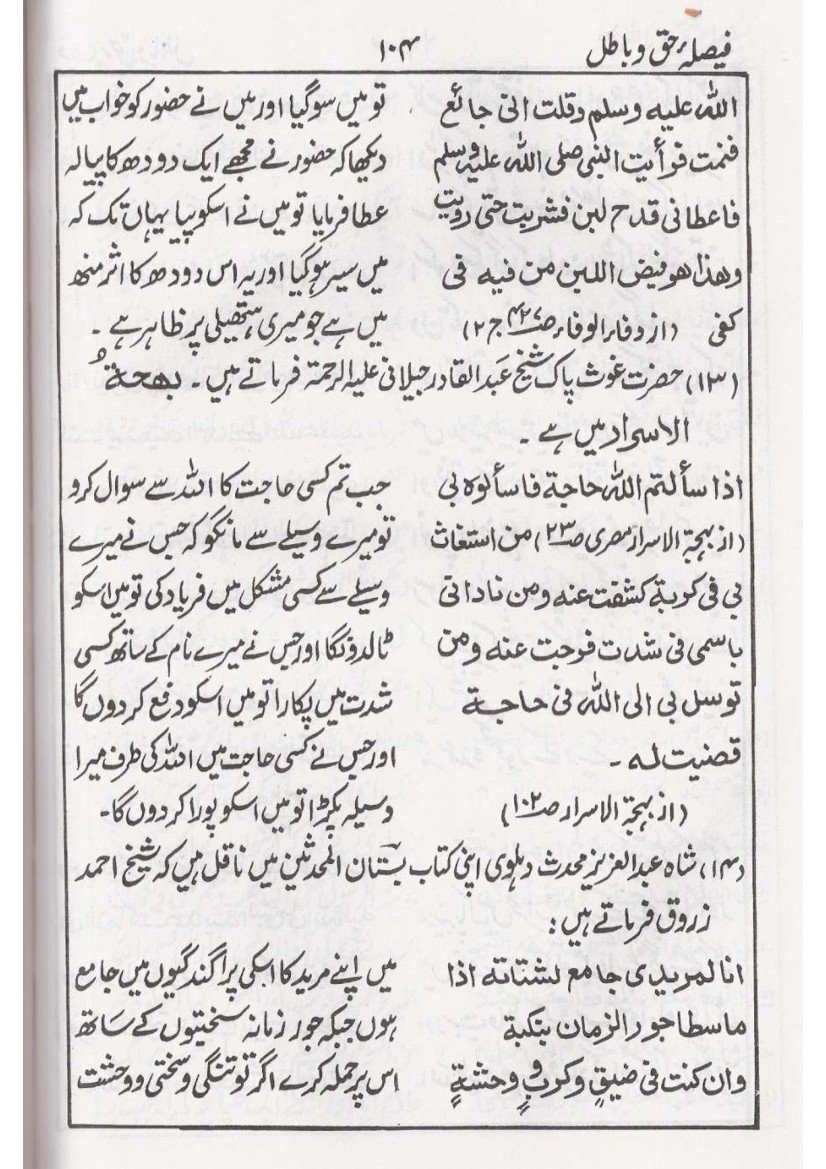 فیصلۂ حق و باطل ۱۰۴
اللہ علیہ وسلم وقلت انی جائع تو میں سوگیا اور میں نے حضور کو خواب میں
فنمت فرأیت النبی صلی اللہ علیہ وسلم دیکھا کہ حضور نے مجھے ایک دودھ کا پیالہ
فاعطانی قدح لبن فشربت حتی رویت عطا فرمایا تو میں نے اسکو پیا یہاں تک کہ
وھذا ھو فیض اللبن من فیہ فی میں سیر ہوگیا اور یہ اس دودھ کا اثر منھ
کفی (از وفاء الوفاء صـ۴۲۷ ج۲) میں ہے جو میری ہتھیلی پر ظاہر ہے۔
(۱۳) حضرت غوث پاک شیخ عبد القادر جیلانی علیہ الرحمۃ فرماتے ہیں۔ بھجۃُ
الاسرار میں ہے۔
اذا سألتم اللہ حاجۃ فاسألوہ بی جب تم کسی حاجت کا اللہ سے سوال کرو
(از بہجۃ الاسرار مصری صـ۲۳) من استغاث تو میرے وسیلے سے مانگو کہ جس نے میرے
بی فی کربۃ کشفت عنہ ومن نادانی وسیلے سے کسی مشکل میں فریاد کی تو میں اسکو
باسمی فی شدت فرجت عنہ ومن ٹالدونگا اور جس نے میرے نام کے ساتھ کسی
توسل بی الی اللہ فی حاجۃ شدت میں پکارا تو میں اسکو دفع کردوں گا
قضیت لہ ۔ اور جس نے کسی حاجت میں اللہ کی طرف میرا
(از بہجۃ الاسرار صـ۱۰۲) وسیلہ پکڑا تو میں اسکو پورا کردوں گا۔
(۱۴) شاہ عبد العزیز محدث دہلوی اپنی کتاب بستان المحدثین میں ناقل ہیں کہ شیخ احمد
زروق فرماتے ہیں:
انا لمریدی جامع لشتاتہ اذا میں اپنے مرید کا اسکی پراگندگیوں میں جامع
ما سطا جور الزمان بنکبۃ ہوں جبکہ جور زمانہ سختیوں کے ساتھ
وان کنت فی ضیقٍ وکربٍ وحشۃٍ اس پر حملہ کرے اگر تو تنگی و سختی و وحشت